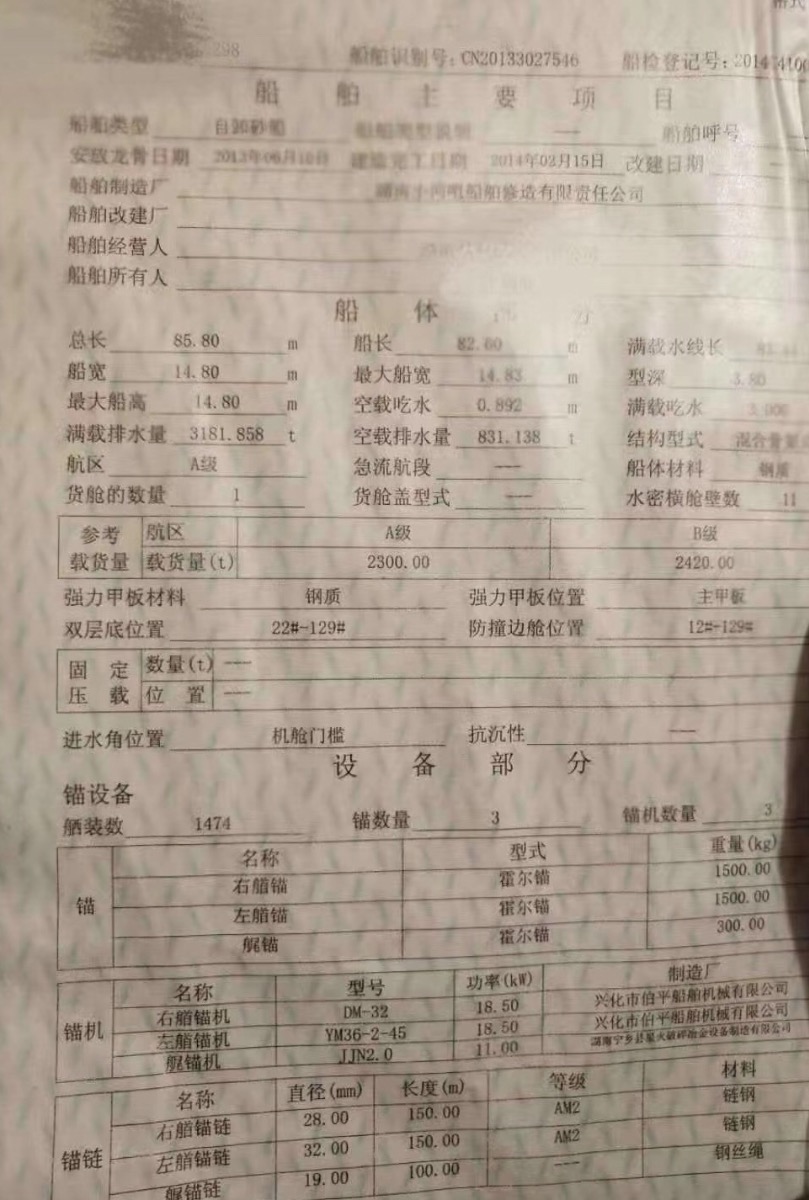 298 船舶识别号:CN20133027546 船检登记号:
船舶主要项目
船舶类型 自卸砂船 船舶类型说明 —— 船舶呼号
安放龙骨日期 建造完工日期 2014年02月15日 改建日期 ——
船舶制造厂 船舶修造有限责任公司
船舶改建厂
船舶经营人
船舶所有人
船体
总长 85.80 m 船长 82.60 m 满载水线长
船宽 14.80 m 最大船宽 14.83 m 型深 3.80
最大船高 14.80 m 空载吃水 0.892 m 满载吃水
满载排水量 3181.858 t 空载排水量 831.138 t 结构型式
航区 A级 急流航段 —— 船体材料 钢质
货舱的数量 1 货舱盖型式 —— 水密横舱壁数 11
参考 航区 A级 B级
载货量 载货量(t) 2300.00 2420.00
强力甲板材料 钢质 强力甲板位置 主甲板
双层底位置 22#-129# 防撞边舱位置 12#-129#
固定 数量(t) ——
压载 位置 ——
进水角位置 机舱门槛 抗沉性 ——
设备部分
锚设备
舾装数 1474 锚数量 3 锚机数量 3
锚 名称 型式 重量(kg)
右艏锚 霍尔锚 1500.00
左艏锚 霍尔锚 1500.00
艉锚 霍尔锚 300.00
锚机 名称 型号 功率(kW) 制造厂
右艏锚机 DM-32 18.50 兴化市伯平船舶机械有限公司
左艏锚机 YM36-2-45 18.50 兴化市伯平船舶机械有限公司
艉锚机 JJN2.0 11.00 湖南宁乡县星火破碎冶金设备制造有限公司
锚链 名称 直径(mm) 长度(m) 等级 材料
右艏锚链 28.00 150.00 AM2 链钢
左艏锚链 32.00 150.00 AM2 链钢
艉锚链 19.00 100.00 —— 钢丝绳